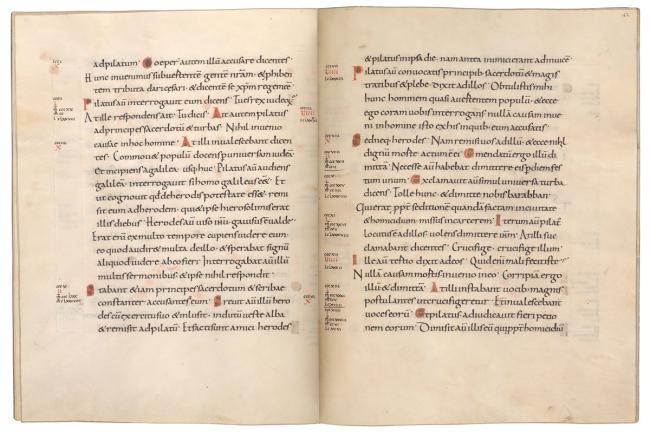 adpilatum. Coeper autem illu accusare dicentes
Hunc inuenimus subuertentem gente nram. & phiben
tem tributa dari cesari. & dicente se xpm regem ee
Pilatus au interrogauit eum dicens. Tu es rex iudeoz
At ille respondens ait. Tu dicis. Ait autem pilatus
ad principes sacerdotu & turbas. Nihil inuenio
causae in hoc homine. At illi inualescebant dicen
tes. Commouet populu docens p uniuersam iudeam
Et incipiens a galilea usq; huc. Pilatus au audiens
galilea. interrogauit si homo galileus esset. Et
ut cognouit qd de herodis potestate esset. remi
sit eum ad heroden. qui & ipse hierosolimis erat
illis diebus. Herodes au uiso ihu. gauisus e ualde.
Erat eni ex multo tempore cupiens uidere eum.
eo quod audir& multa de illo. & sperabat signu
aliquod uidere ab eo fieri. Interrogabat au illu
multis sermonibus. & ipse nihil respondit.
Stabant & iam principes sacerdotum & scribae
constanter accusantes eum. Spreuit au illu hero
des cu exercitu suo & inlusit. indutu ueste alba
& remisit ad pilatu. Et facti sunt amici herodes
42
& pilatus in ipsa die. nam antea inimici erant ad inuice
Pilatus au conuocatis principib; sacerdotu & magis
tratibus & plebe. dixit ad illos. Obtulistis mihi
hunc hominem quasi auertentem populu. & ecce
ego coram uobis interrogans nulla causam inue
ni in homine isto ex his in quib; eum accusatis.
Sed neq; herodes. Nam remisi uos ad illu. & ecce nihil
dignu morte actum e ei. Emendatu ergo illu di
mitta. Necesse au habebat dimittere eis p diem fes
tum unum. Exclamauit au simul uniuersa turba
dicens. Tolle hunc. & dimitte nobis barabban.
Qui erat ppt seditione quanda facta in ciuitate
& homicidium missus in carcerem. Iterum au pilat
locutus e ad illos uolens dimittere ihm. At illi suc
clamabant dicentes. Crucifige. crucifige illum.
Ille au tertio dixit ad eos. Quid eni mali fecit iste
Nulla causam mortis inuenio in eo. Corripia ergo
illu & dimitta. At illi instabant uocib; magnis
postulantes ut crucifiger&ur. Et inualescebant
uoces eoru. Et pilatus adiudicauit fieri petitio
nem eorum. Dimisit au illis eu qui ppt homicidiu